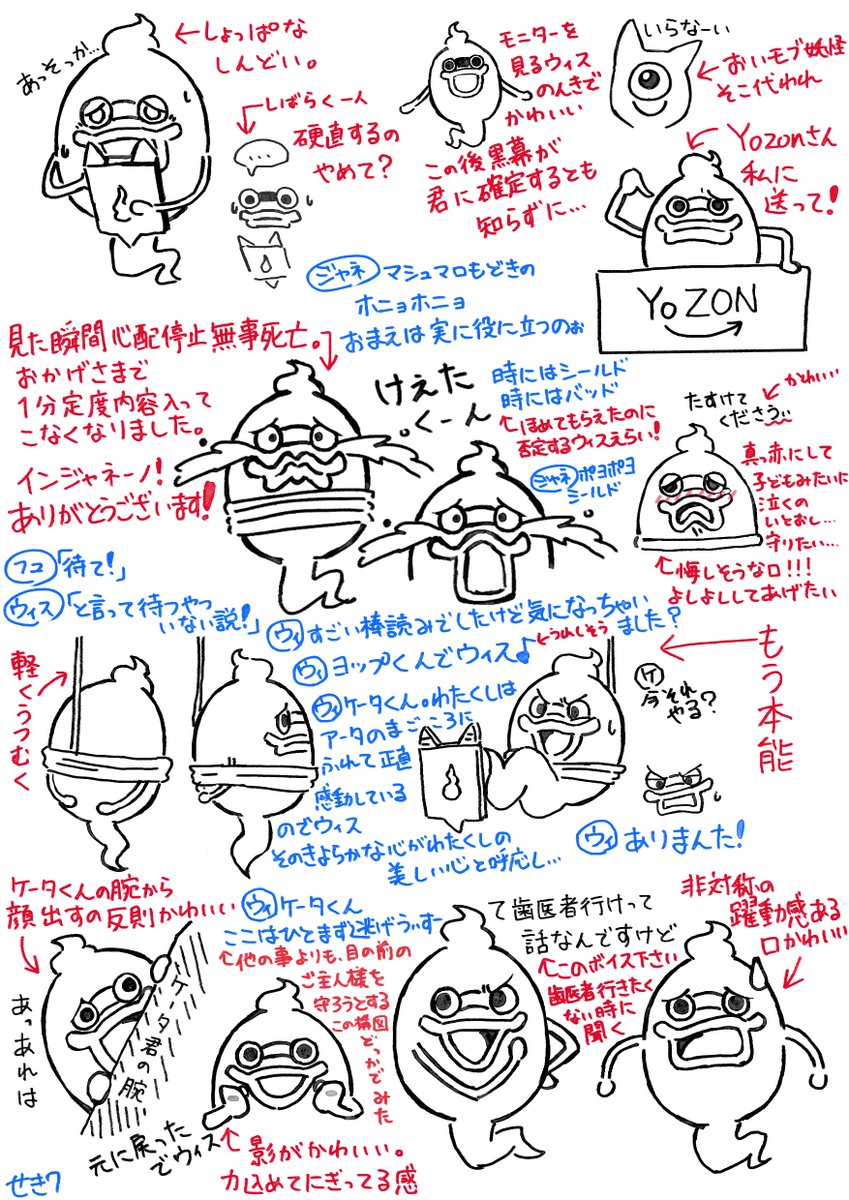 あっそっか…
しょっぱな
しんどい。
しばらく一人
硬直するの
やめて?
...
モニターを
見るウィス
のんきで
かわいい
この後黒幕が
君に確定するとも
知らずに…
いらなーい
おいモブ妖怪
そこ代われ
Yozonさん
私に
送って!
YoZON
ジャネ マシュマロもどきの
ホニョホニョ
おまえは実に役に立つのぉ
見た瞬間心配停止無事死亡。
おかげさまで
1分定度内容入って
こなくなりました。
インジャネーノ!
ありがとうございます!
けぇた
くーん
時にはシールド
時にはバッド
ほめてもらえたのに
否定するウィスえらい!
ジャネ ポヨポヨ
シールド
かわい…
たすけて
くださうぃ
真っ赤にして
子どもみたいに
泣くの
いとおし…
守りたい…
悔しそうな口!!!
よしよししてあげたい
フコ「待て!」
ウィス「と言って待つやつ
いない説!」
ウィ すごい棒読みでしたけど気になっちゃい
ました?
ウィ ヨップくんでウィス♪
うれしそう
軽くうつむく
ウィ ケータくん。わたくしは
アータのまごころに
ふれて正直
感動している
のでウィス
そのきよらかな心がわたくしの
美しい心と呼応し…
もう本能
ケ
今それ
やる?
ウィ ありまんた!
ケータくんの腕から
顔出すの反則かわいい
あっあれは
ケータ君の腕
元に戻った
でウィス
ウィ ケータくん
ここはひとまず逃げうぃすー
他の事よりも、目の前の
ご主人様を
守ろうとする
この構図
どっかでみた
影がかわいい。
力込めてにぎってる感
て歯医者行けって
話なんですけど
このボイス下さい
歯医者行きたく
ない時に
聞く
非対称の
躍動感ある
口かわいい
せき7